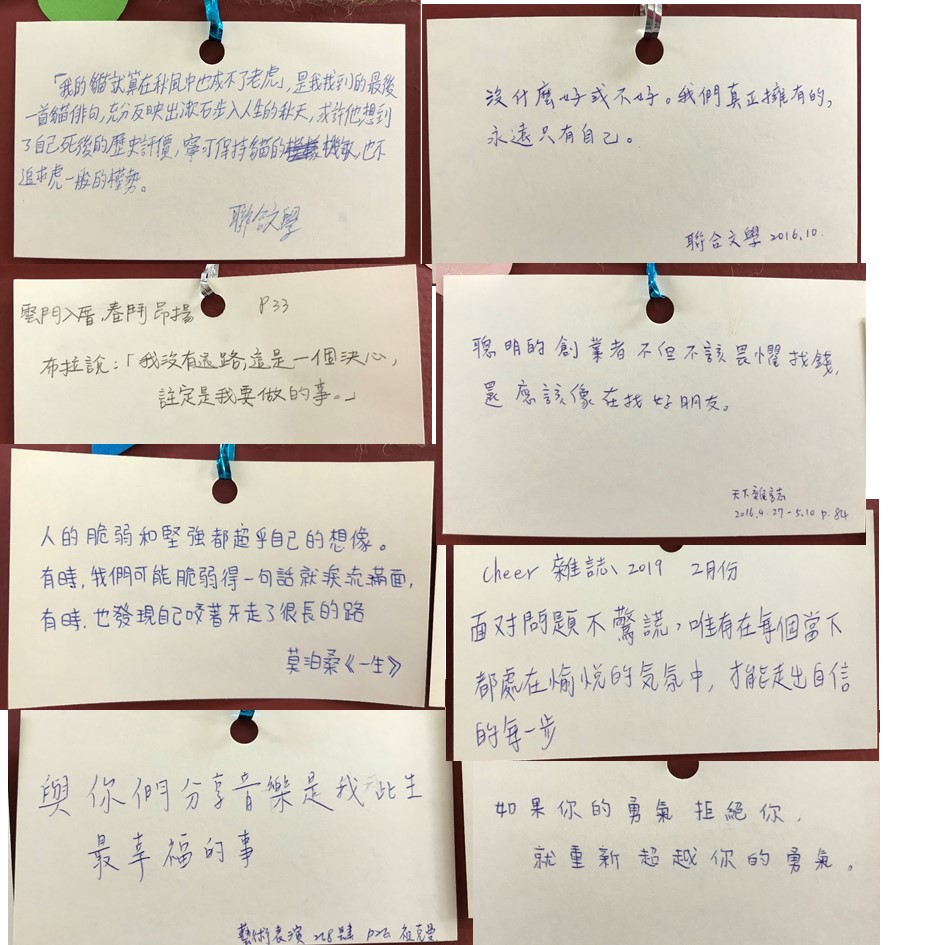 「我的貓就算在秋風中也成不了老虎」,是我找到的最後
一首貓俳句,充分反映出漱石步入人生的秋天,或許他想到
了自己死後的歷史評價,寧可保持貓的機敏,也不
追求虎一般的權勢。
聯合文學
沒什麼好或不好。我們真正擁有的,
永遠只有自己。
聯合文學 2016.10.
雲門入厝.春鬥昂揚 P33
布拉說:「我沒有退路,這是一個決心,
註定是我要做的事。」
聰明的創業者不但不該畏懼找錢,
還應該像在找好朋友。
天下雜誌
2016.4.27-5.10 p.84
人的脆弱和堅強都超乎自己的想像。
有時,我們可能脆弱得一句話就淚流滿面,
有時,也發現自己咬著牙走了很長的路
莫泊桑《一生》
Cheer 雜誌、2019 2月份
面对問題不驚謊,唯有在每個當下
都處在愉悅的気氛中,才能走出自信
的每一步
與你們分享音樂是我此生
最幸福的事
藝術表演 228 P26 祖克曼
如果你的勇氣拒絕你,
就重新超越你的勇氣。